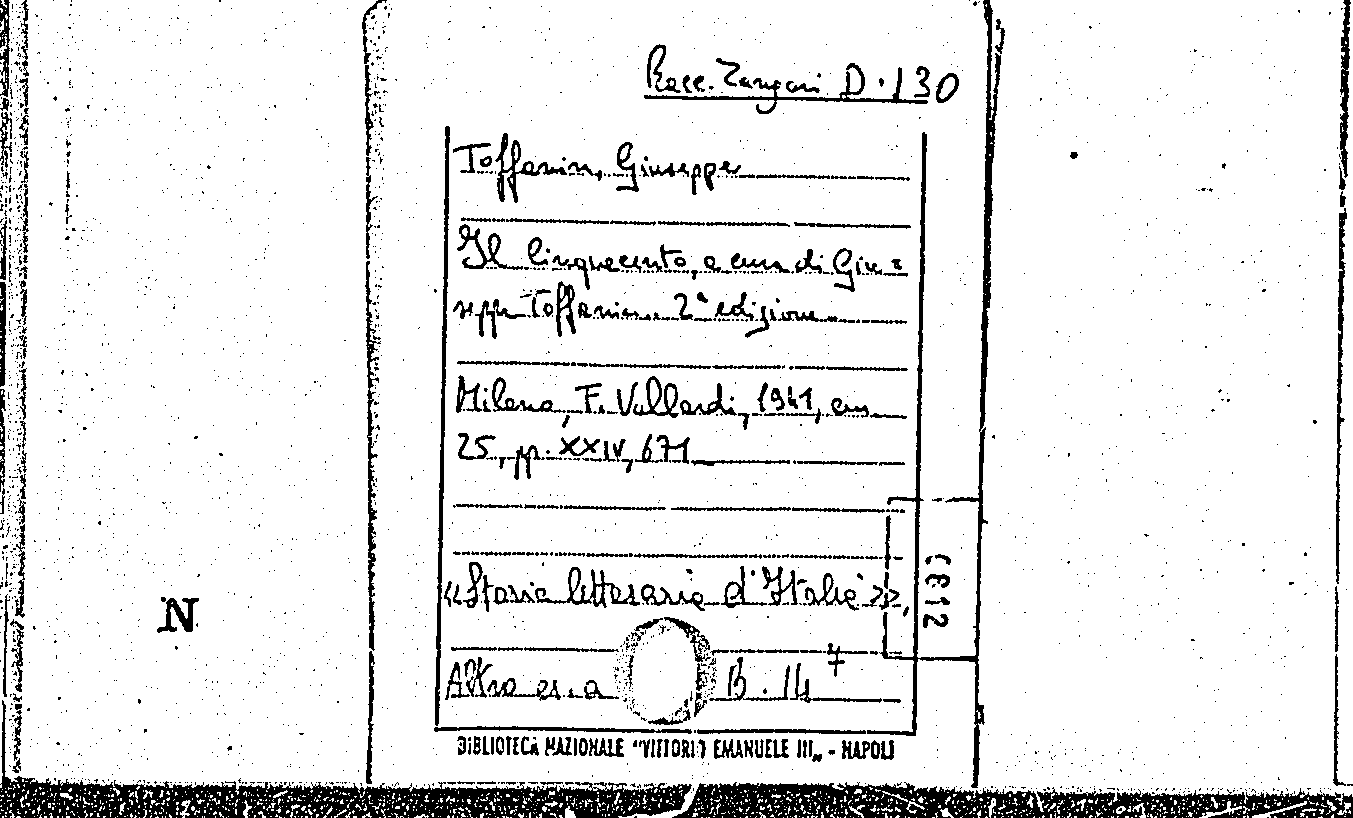 Racc. Zangari D. 130
Toffanin, Giuseppe
Il Cinquecento, a cura di Giu=
seppe Toffanin. 2ª edizione.
Milano, F. Vallardi, 1941, cm.
25, pp. XXIV, 671
«Storia letteraria d'Italia»,
Altro es. a B. 14 7
BIBLIOTECA NAZIONALE "VITTORIO EMANUELE III„ - NAPOLI
N